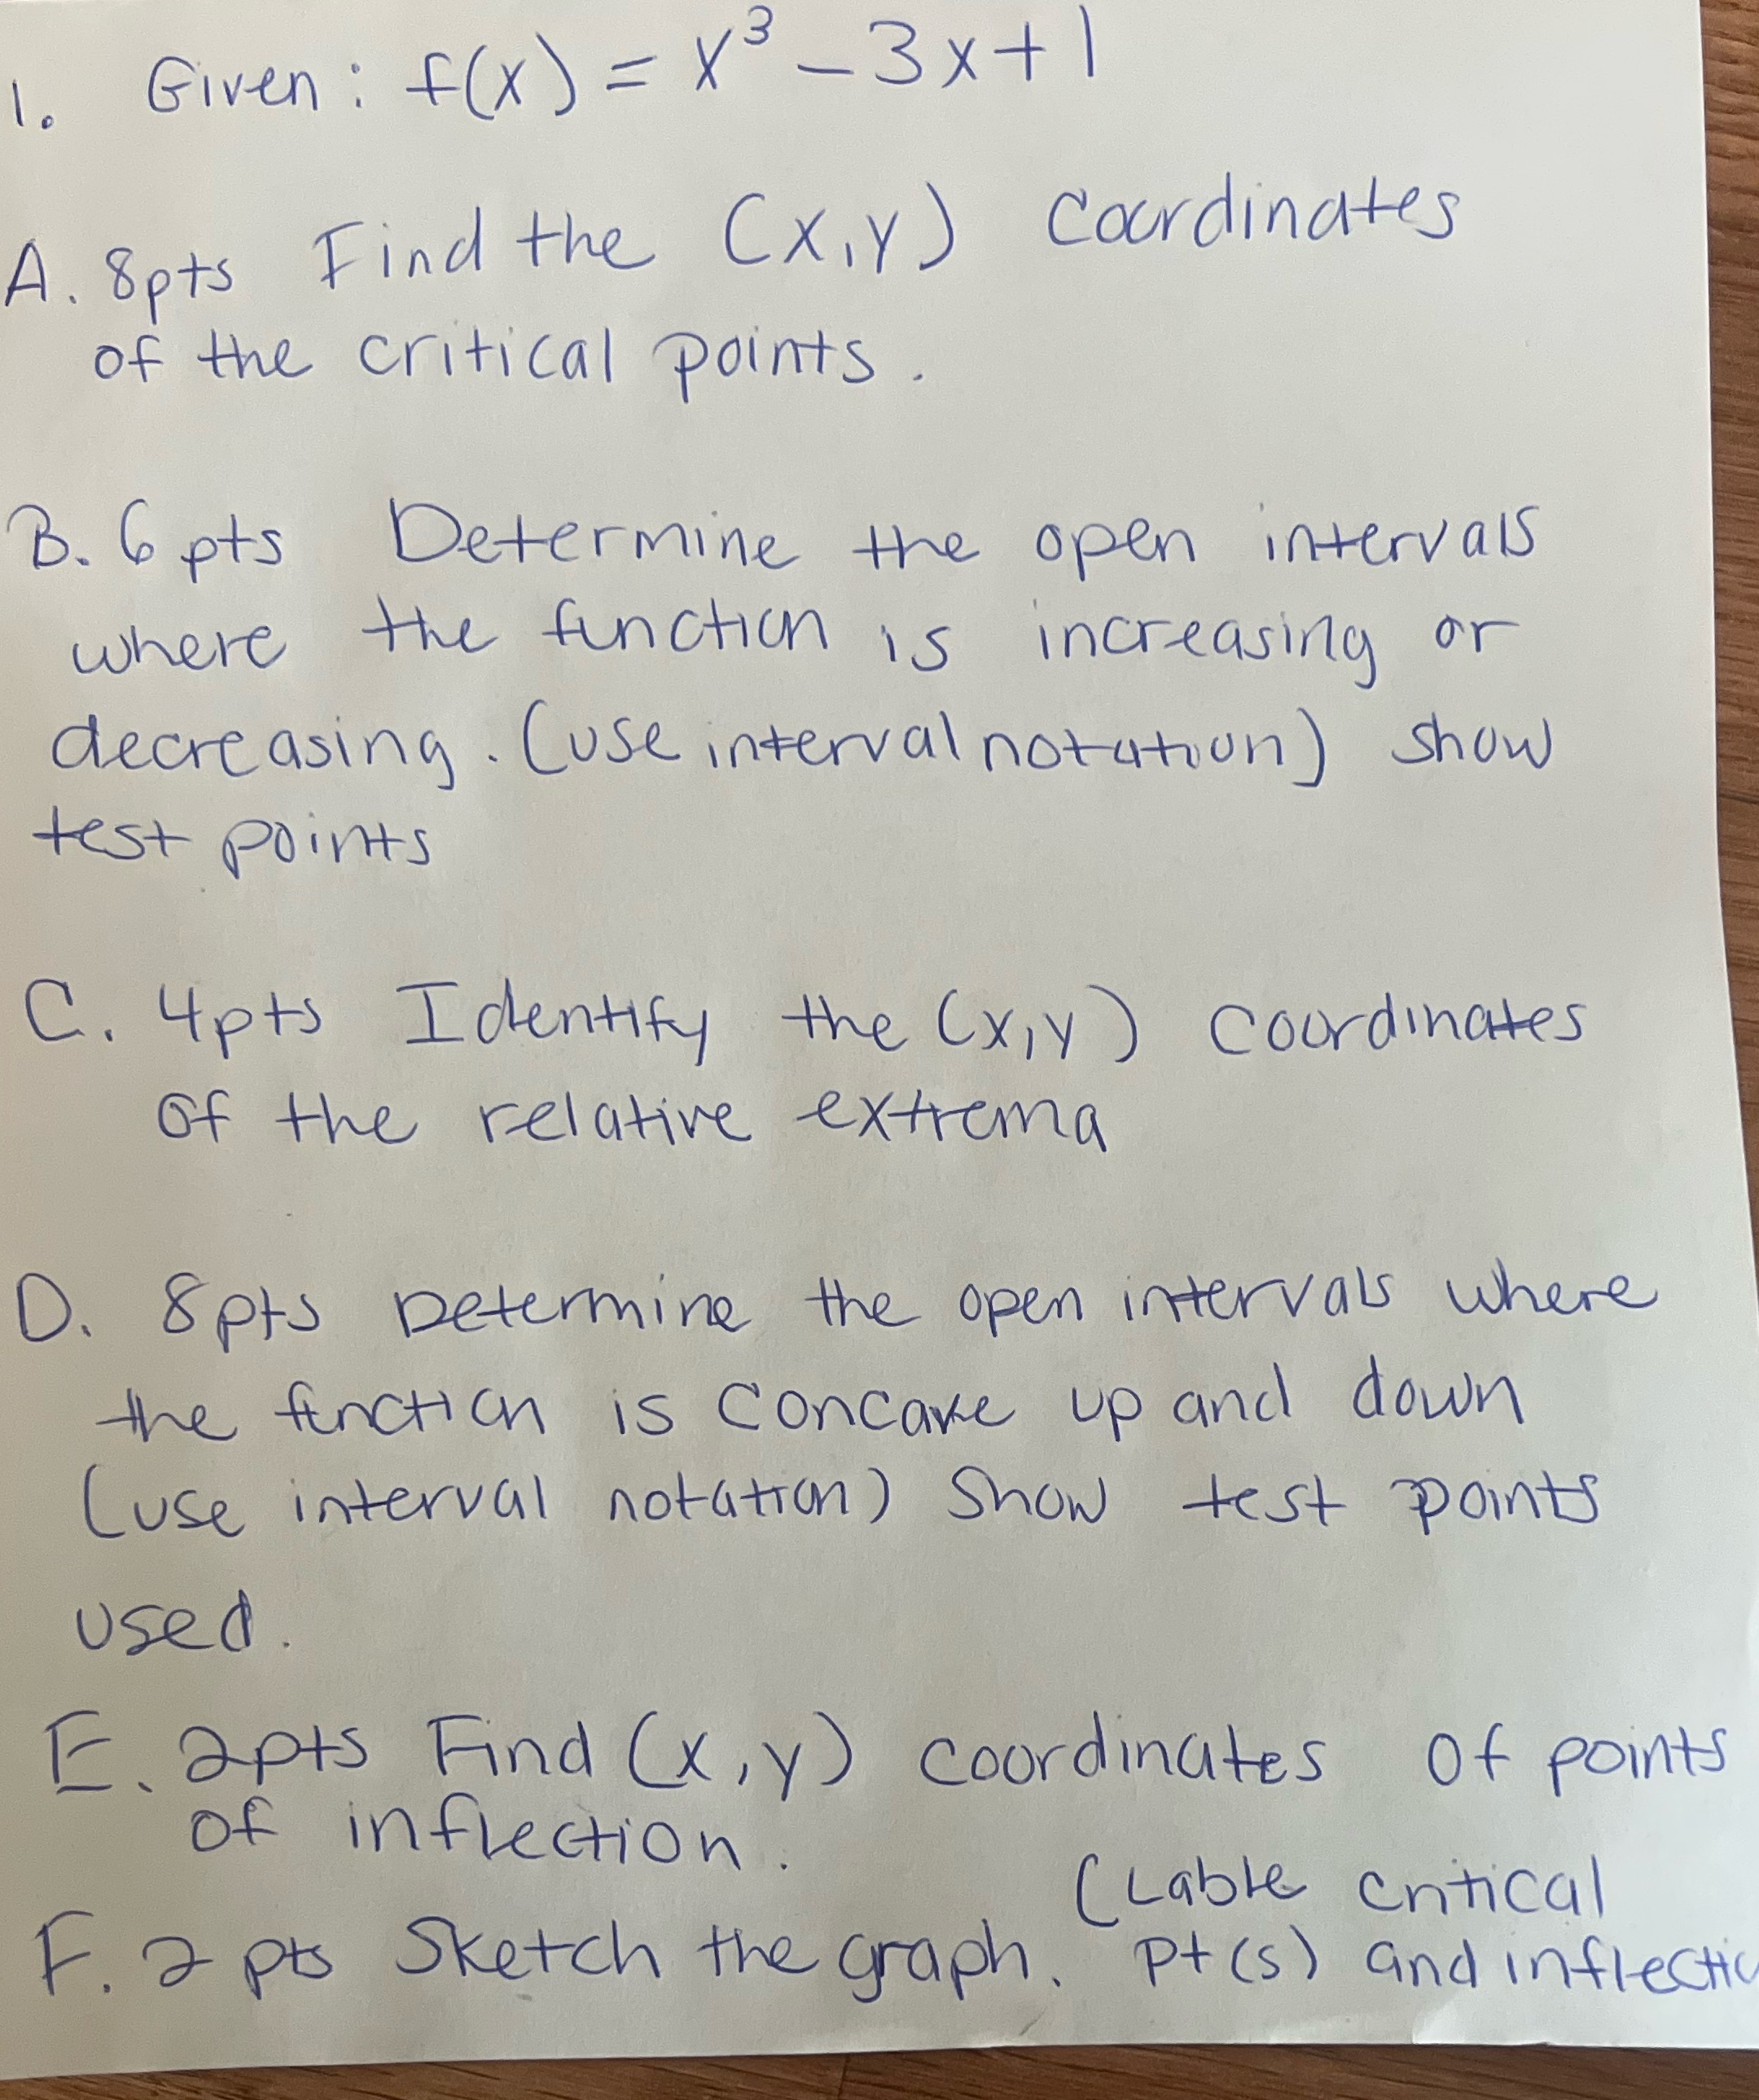 1. Given: f(x) = x³ - 3x + 1
A. 8pts Find the (x,y) Coordinates
of the critical points.
B. 6 pts Determine the open intervals
where the function is increasing or
decreasing. (use interval notation) show
test points
C. 4pts Identify the (x,y) coordinates
of the relative extrema
D. 8pts Determine the open intervals where
the function is concave up and down
(use interval notation) Show test points
used.
E. 2pts Find (x,y) coordinates of points
of inflection.
(Lable critical
F. 2 pts Sketch the graph. pt(s) and inflectio